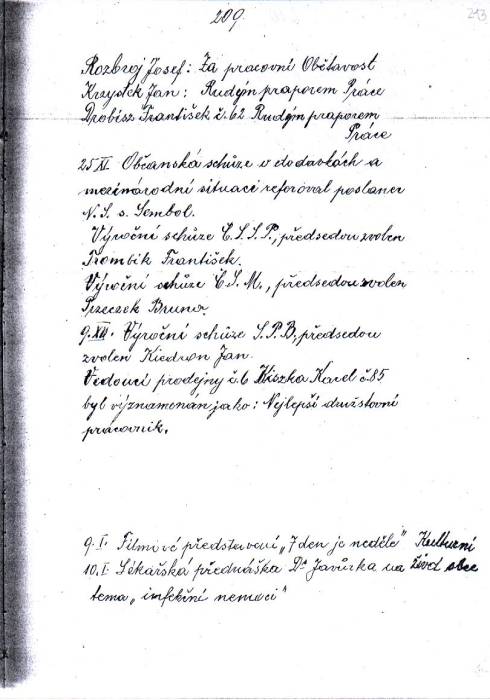 209.
213
Rozbroj Josef: Za pracovní Obětavost
Krzystek Jan: Rudým praporem Práce
Drobisz František č. 62 Rudým praporem
Práce
25 XI. Občanská schůze o dodávkách a
mezinárodní situaci referoval poslanec
N. S. s. Sembol.
Výroční schůze Č.S.S.P., předsedou zvolen
Trombik František.
Výroční schůze Č.S.M., předsedou zvolen
Przeczek Bruno.
9. XII. Výroční schůze S.P.B, předsedou
zvolen Kiedron Jan.
Vedoucí prodejny č. 6 Kiszka Karel č 85,
byl vyznamenán jako: Nejlepší družstevní
pracovník.
9. I. Filmové představení „7 den je neděle" Kulturní
10. I Lékařská přednáška Dr Javůrka na život obce
tema „infekční nemoci"